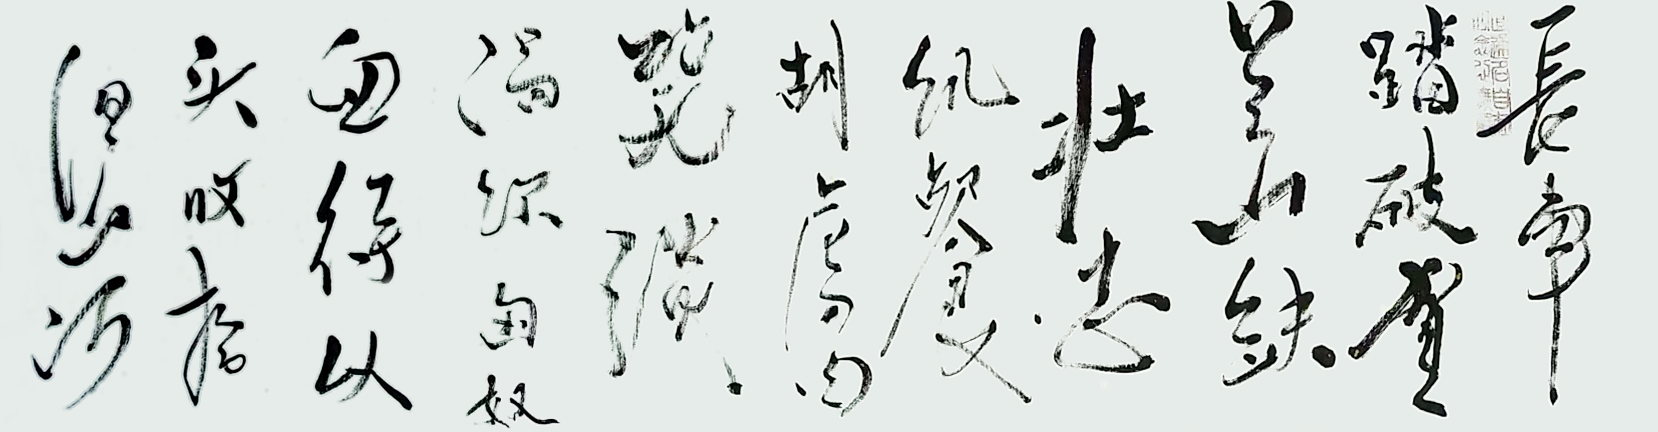 長車
踏破賀
兰山缺
壮志
飢餐
胡虜肉
笑談
渴飲匈奴
血待从
头收拾
旧山河